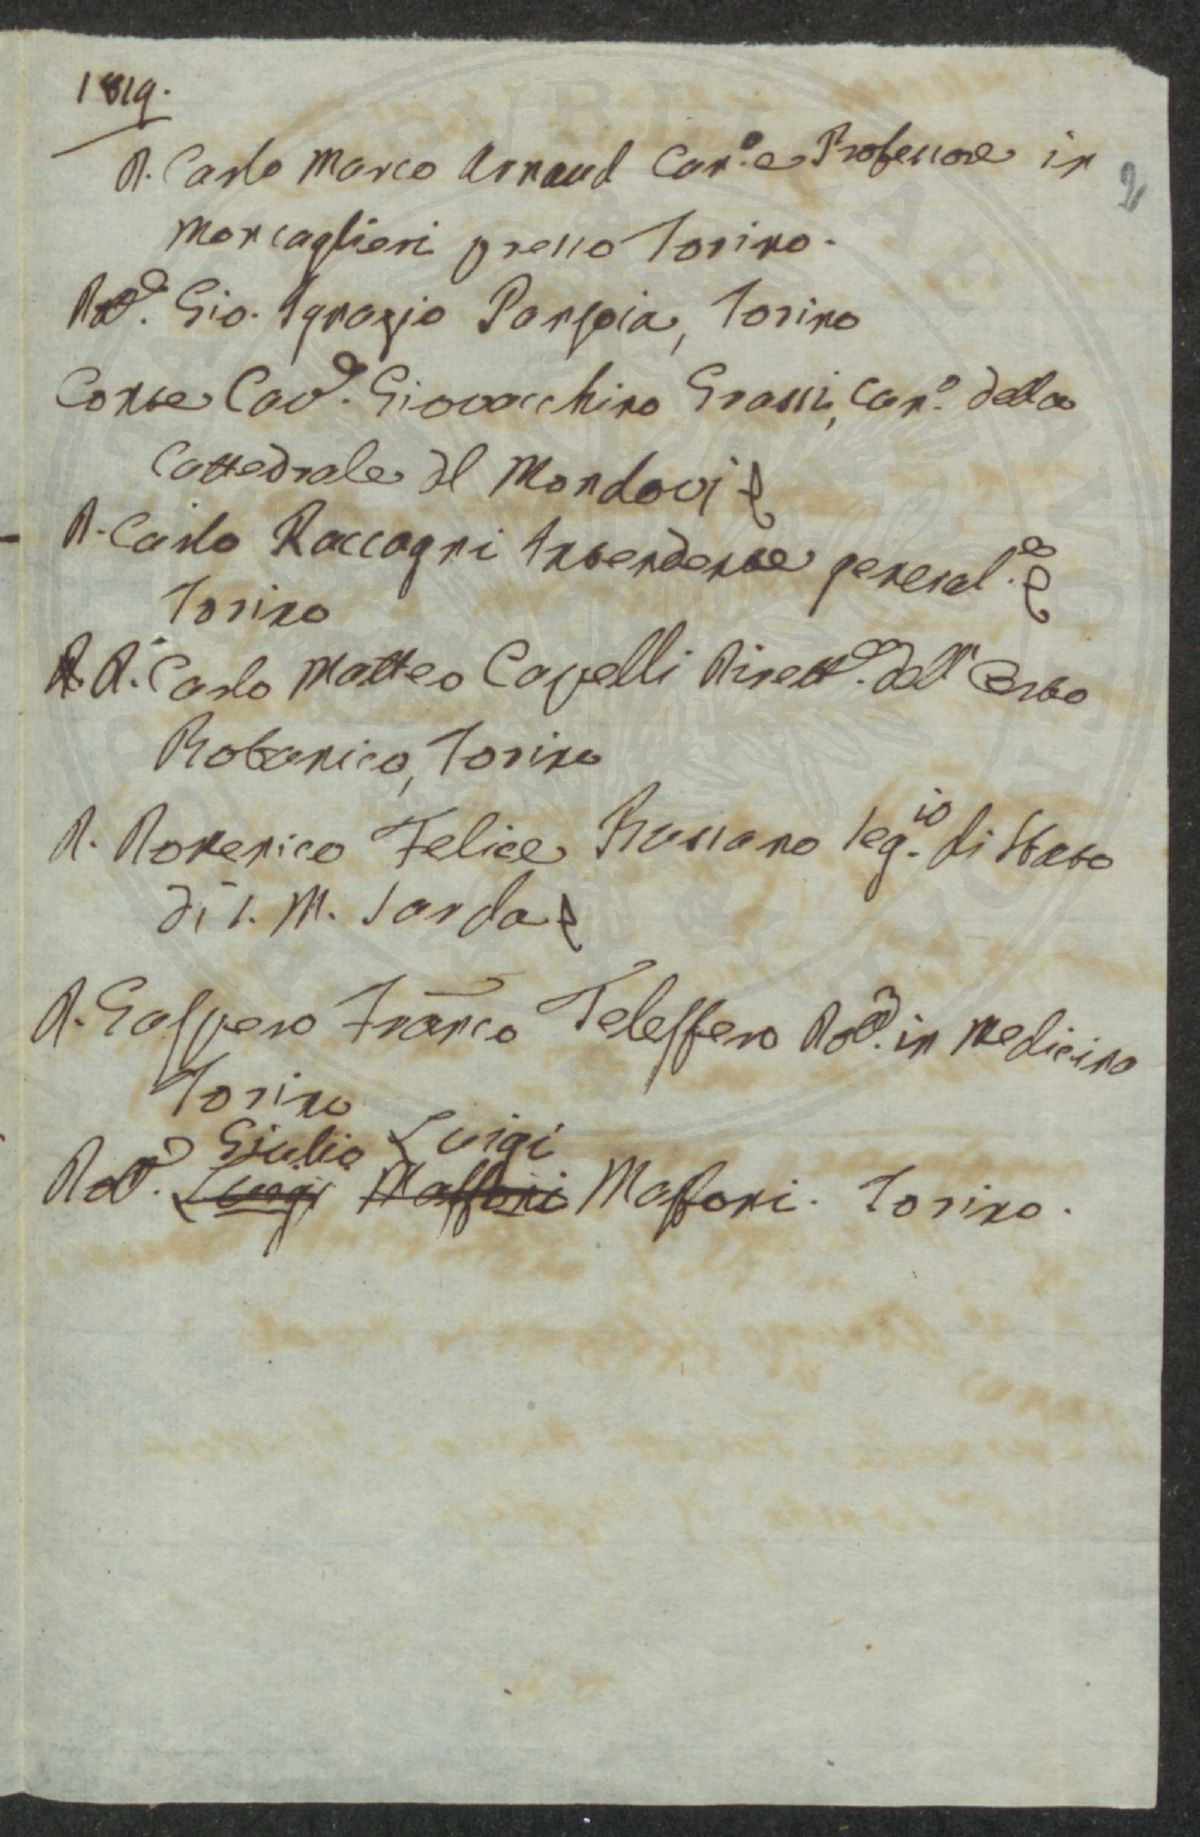 1819.
D. Carlo Marco Arnaud Can.o e Professore in
2
Moncaglieri presso Torino.
Dott.e Gio. Ignazio Pansoia, Torino
Conte Cav.e Giovacchino Grassi, Can.o della
Cattedrale di Mondovi
D. Carlo Raccagni Intendente general.e
Torino
D. Carlo Matteo Capelli Dirett.e dell'Orto
Botanico, Torino
D. Domenico Felice Bussano Seg.io di Stato
di S. M. Sarda
D. Gaspero Franco Telesfero Dott. in Medicina
Torino
Giulio Luigi
Dott.e Luigi Maffoni Maffoni. Torino.